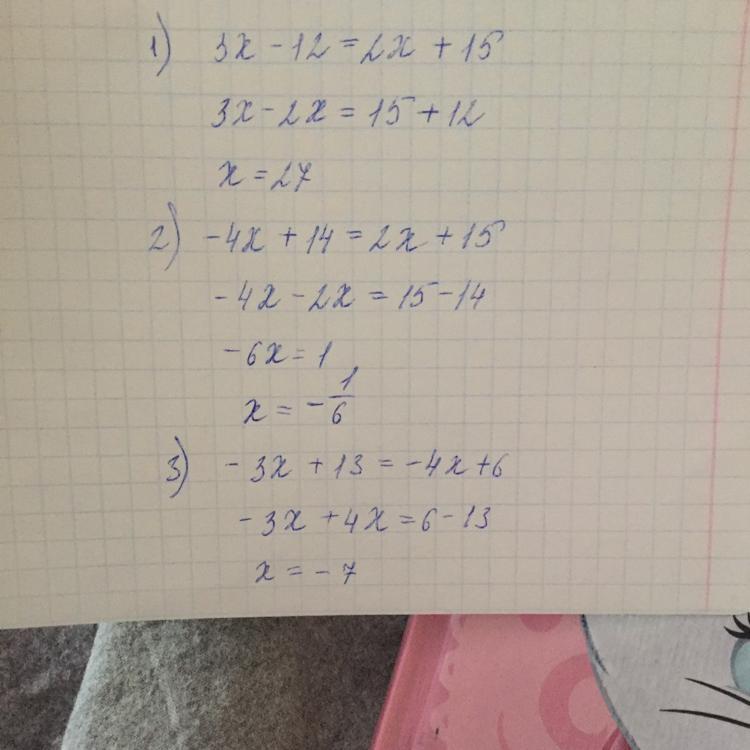 1) 3x - 12 = 2x + 15
3x - 2x = 15 + 12
x = 27
2) -4x + 14 = 2x + 15
-4x - 2x = 15 - 14
-6x = 1
x = -1/6
3) -3x + 13 = -4x + 6
-3x + 4x = 6 - 13
x = -7